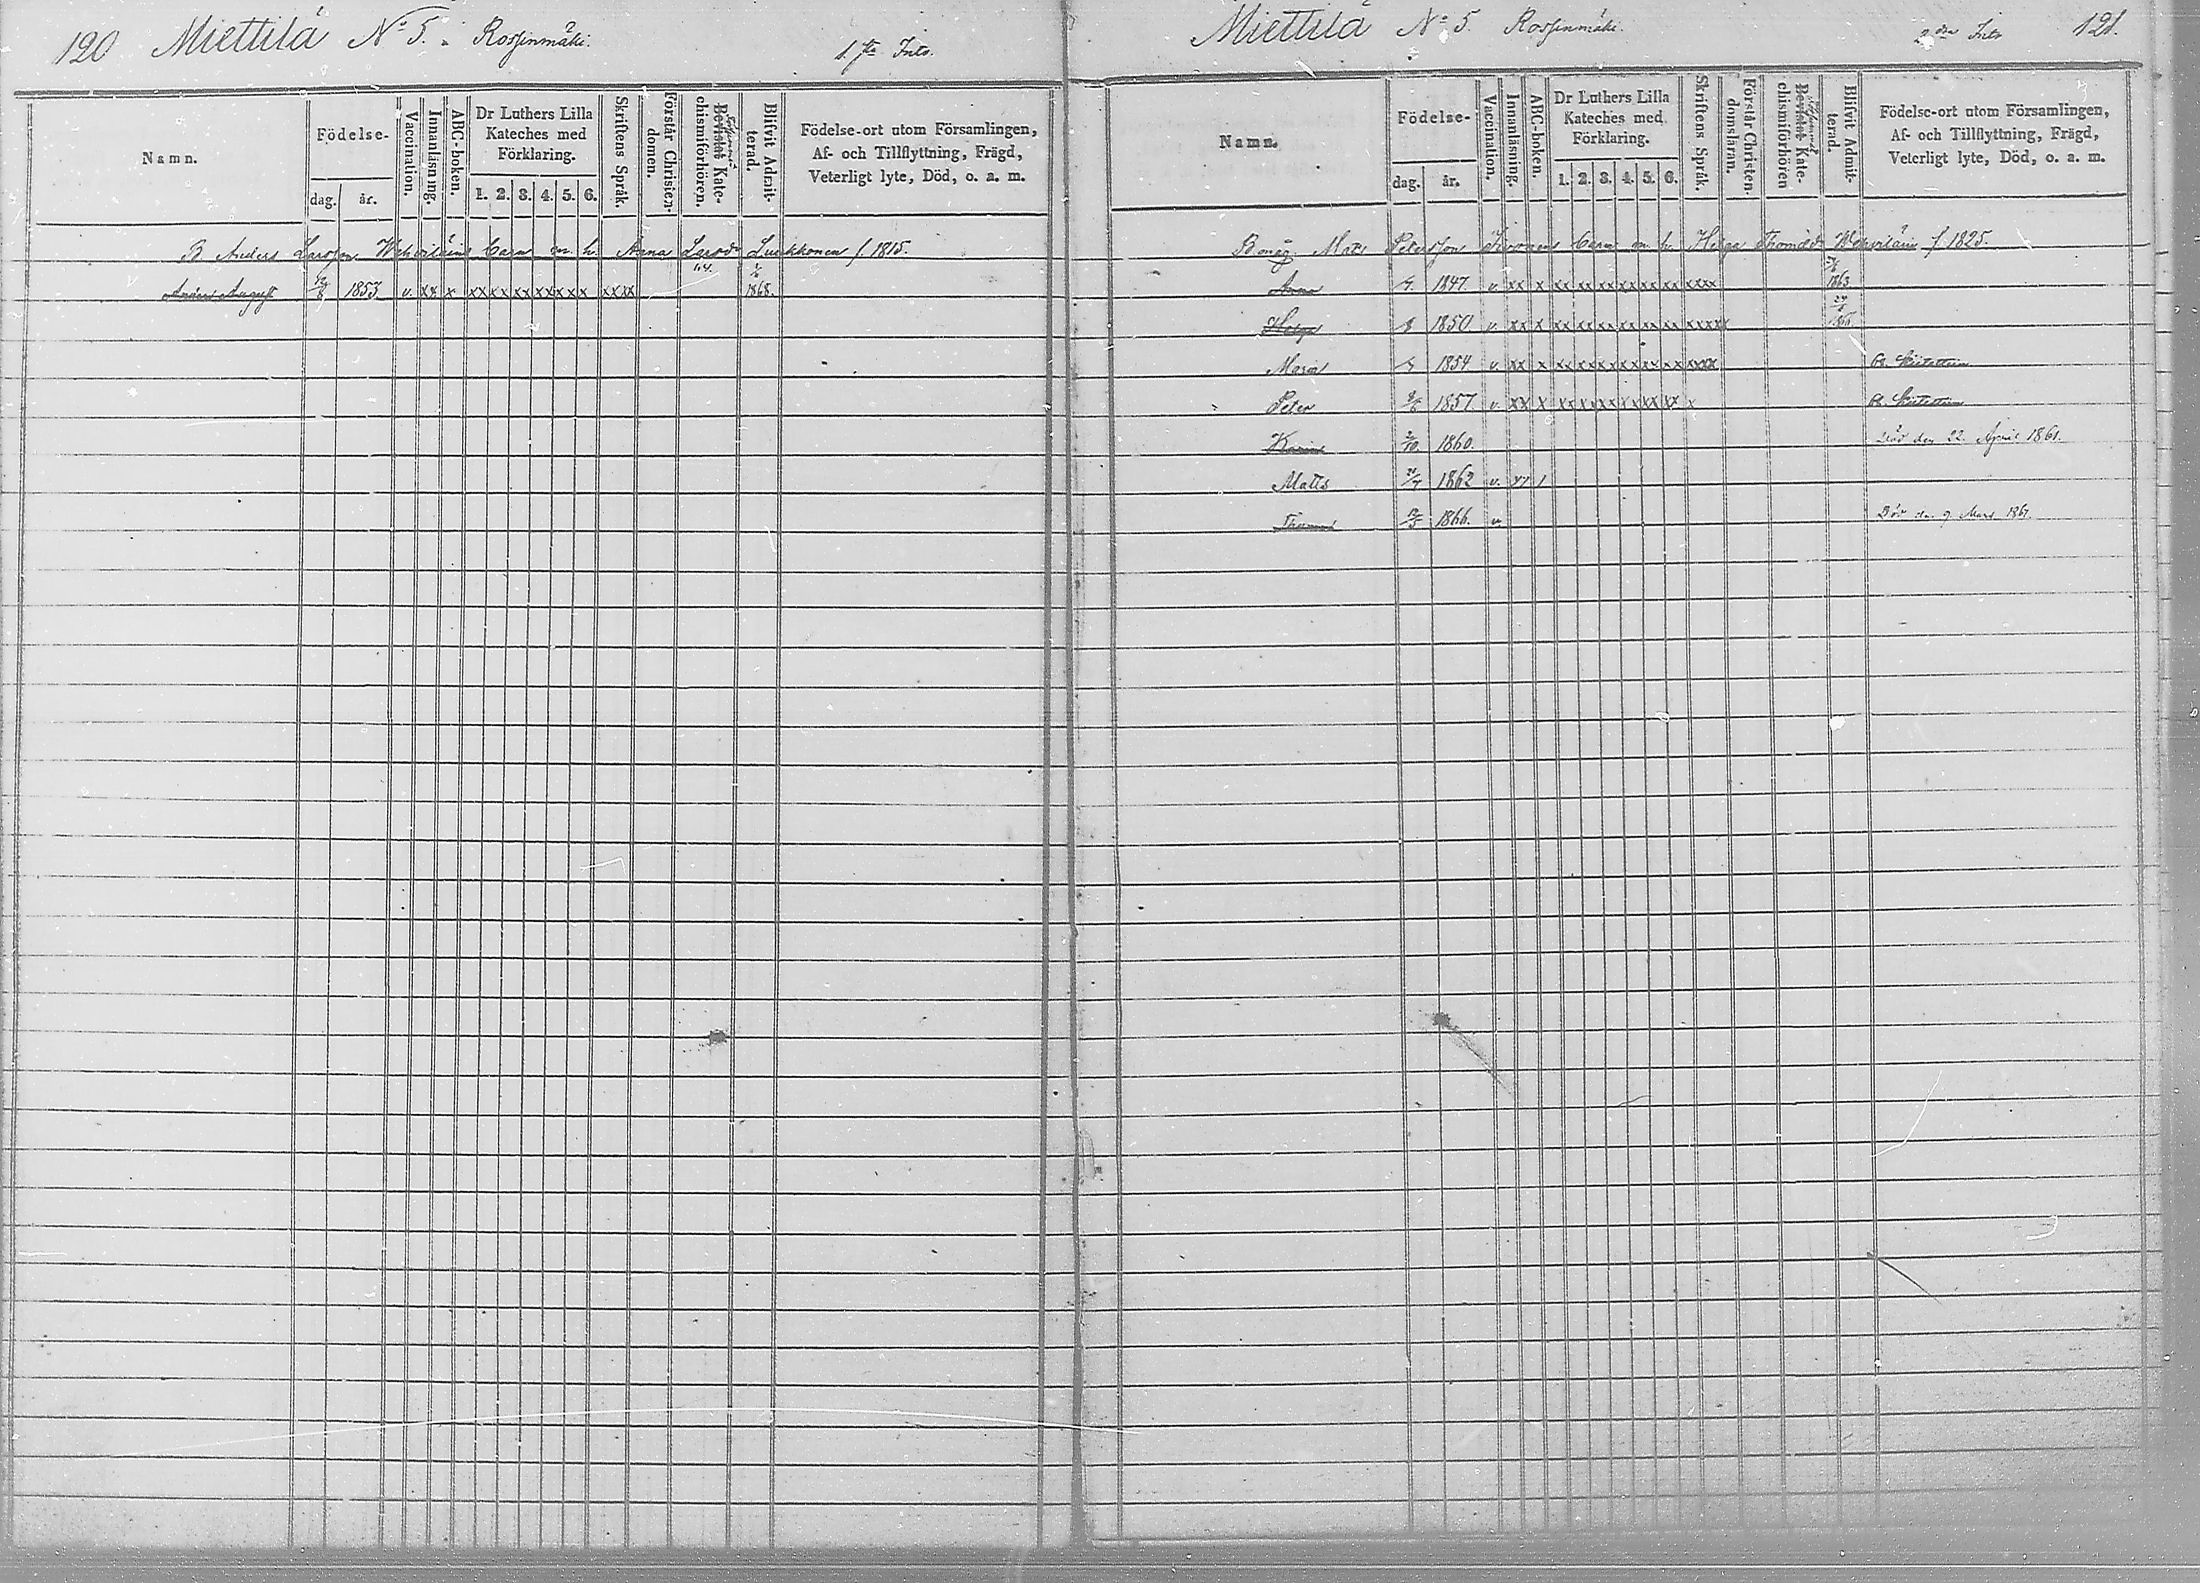 120 Miettilä No 5. Rossinmäki. 1sta Intr.
Namn.
Födelse-
dag. år.
Vaccination.
Innanläsning.
ABC-boken.
Dr Luthers Lilla Kateches med Förklaring.
1. 2. 3. 4. 5. 6.
Skriftens Språk.
Förstår Christen-domen.
Bevistat Kate-chismiförhören.
Blifvit Admit-terad.
Födelse-ort utom Församlingen, Af- och Tillflyttning, Frägd, Veterligt lyte, Död, o. a. m.
B Anders Larsson Wehviläins barn m. h. Anna Larsd. Luukkonen f. 1815.
Anders August 1853 v. xx x xx xx xx xx xx x xxxx 1868.
Miettilä No 5. Rossinmäki. 2dra Intr 121.
Namn.
Födelse-
dag. år.
Vaccination.
Innanläsning.
ABC-boken.
Dr Luthers Lilla Kateches med Förklaring.
1. 2. 3. 4. 5. 6.
Skriftens Språk.
Förstår Christen-domsläran.
Bevistat Kate-chismiförhören
Blifvit Admit-terad.
Födelse-ort utom Församlingen, Af- och Tillflyttning, Frägd, Veterligt lyte, Död, o. a. m.
Mats Petersson barn m. h. Helga Thomæd. f. 1825.
Anna 1847 v. xx x xx xx xx xx xx xx xxxx 1863
Helga 1850 v. xx x xx xx xx xx xx xx xxxxx
Maria 1854 v. xx x xx xx xx xx xx xx xxxx
Peter 1857 v. xx x xx xx xx xx xx xx x
1860. Död den 22 April 1861.
Matts 1862 v.
1866. v. Död den 9 Mars 1867.